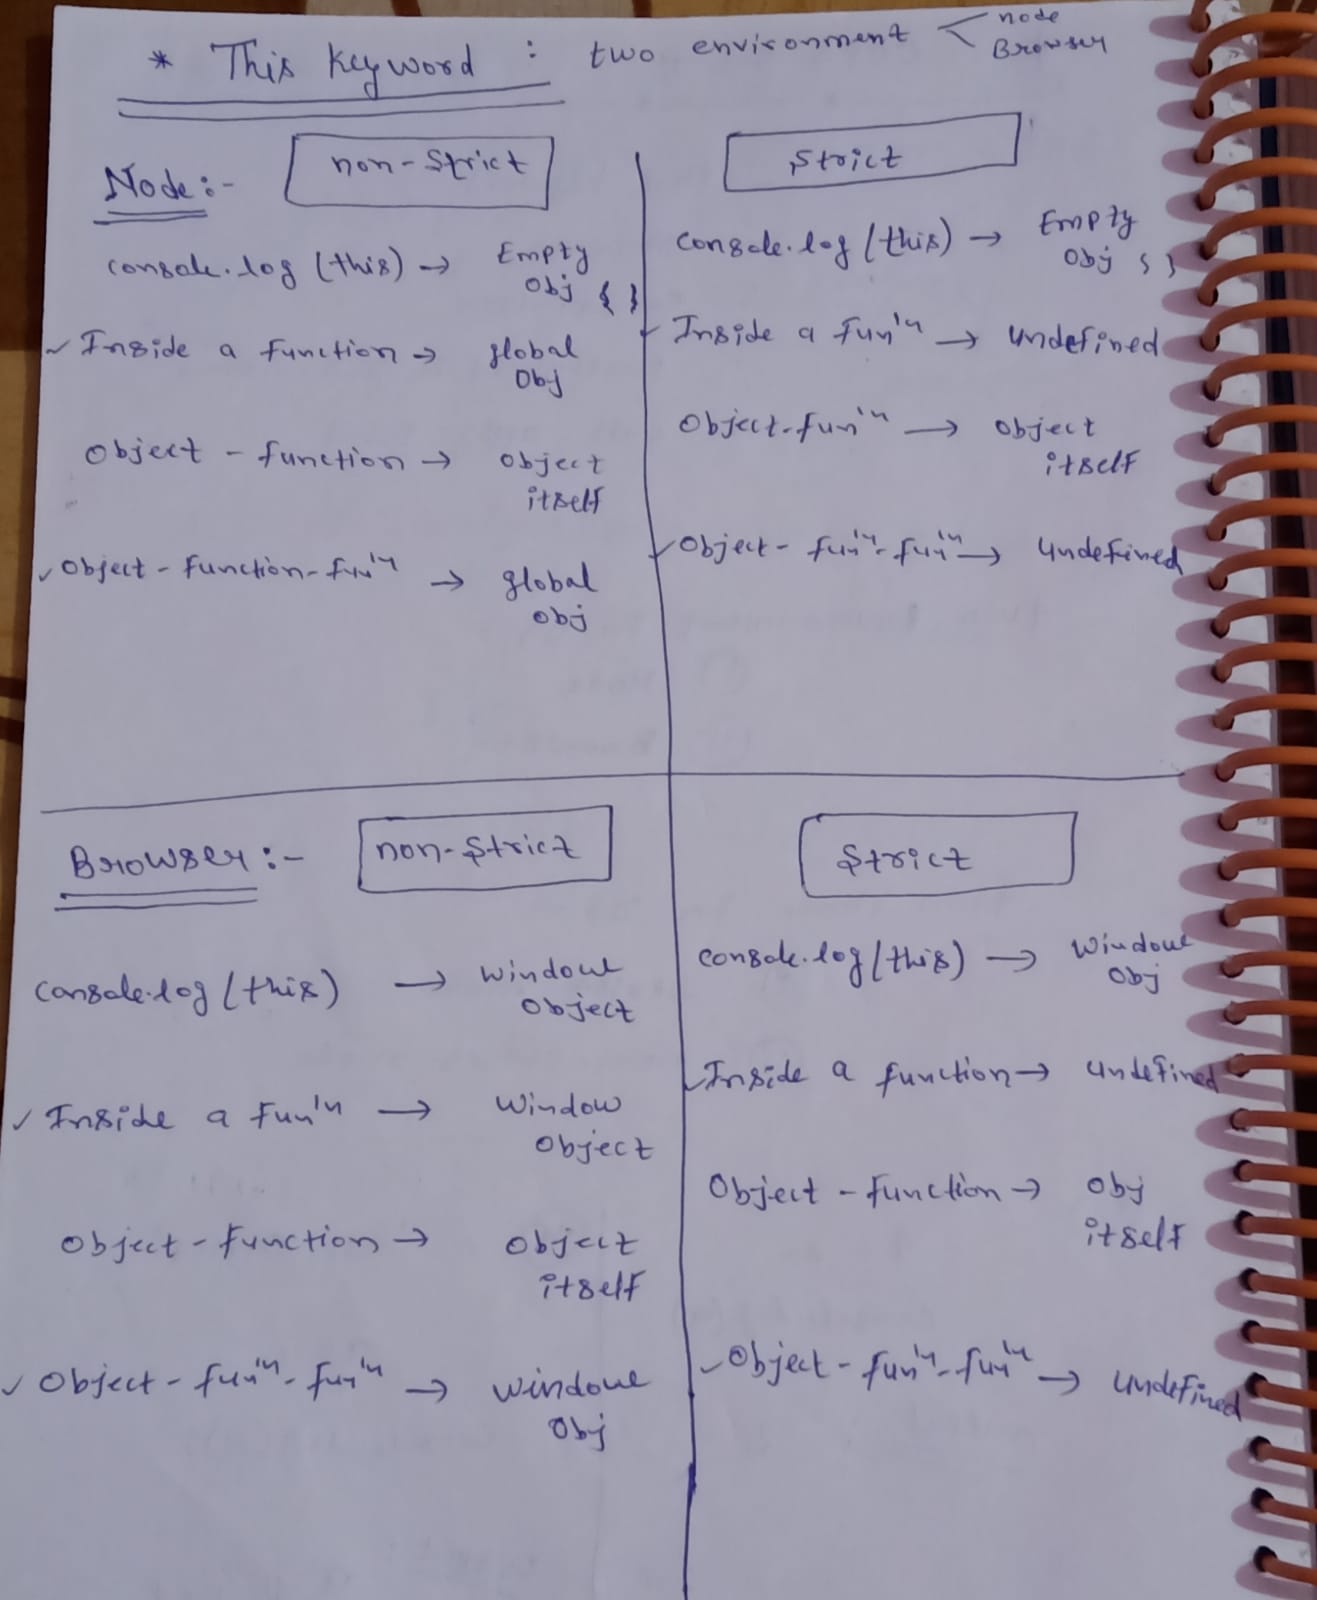 * This keyword : two environment < node
Browser
Node :-
non-strict
console.log (this) → Empty
Obj { }
✓ Inside a function → global
Obj
Object - function → object
itself
✓ Object - function - fun'n → global
obj
strict
console.log (this) → Empty
Obj { }
✓ Inside a fun'n → undefined
Object - fun'n → object
itself
✓ Object - fun'n - fun'n → undefined
Browser :-
non-strict
console.log (this) → window
object
✓ Inside a fun'n → window
object
Object - function → object
itself
✓ Object - fun'n - fun'n → window
obj
strict
console.log (this) → window
obj
✓ Inside a function → undefined
Object - function → obj
itself
✓ Object - fun'n - fun'n → undefined